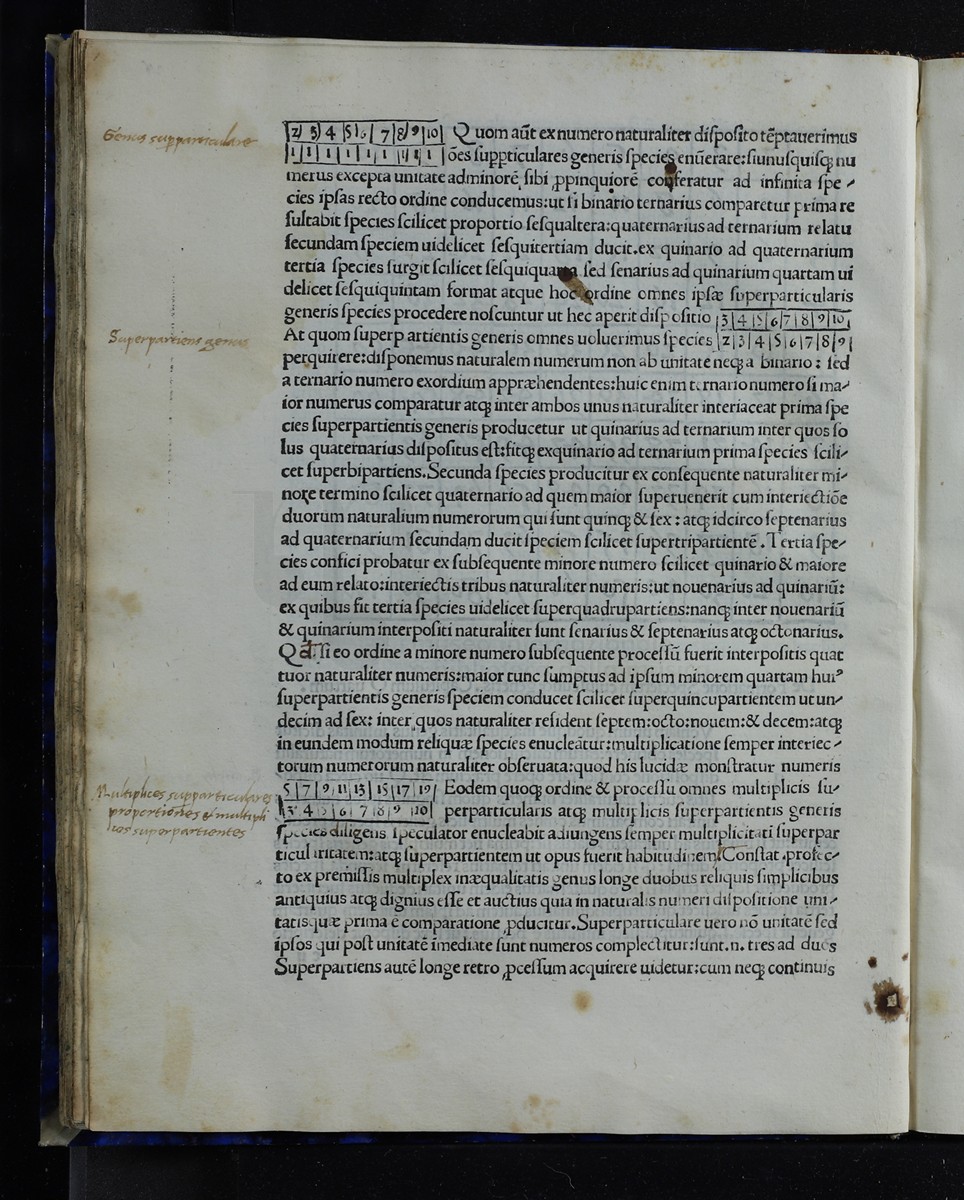 Genus supparticulare
|2|3|4|5|6|7|8|9|10| Quom aūt ex numero naturaliter diſpoſito tēptauerimus
|1|1|1|1|1|1|1|1|1| ōes ſuppticulares generis ſpecies enūerare:ſiunuſquiſq; nu
merus excepta unitate adminorē ſibi ꝓpinquiorē conferatur ad infinita ſpe-
cies ipſas recto ordine conducemus:ut ſi binario ternarius comparetur prima re
ſultabit ſpecies ſcilicet proportio ſeſqualtera:quaternarius ad ternarium relatu
ſecundam ſpeciem uidelicet ſeſquitertiam ducit.ex quinario ad quaternarium
tertia ſpecies ſurgit ſcilicet ſeſquiquarta ſed ſenarius ad quinarium quartam ui
delicet ſeſquiquintam format atque hoc ordine omnes ipſæ ſuperparticularis
generis ſpecies procedere noſcuntur ut hec aperit diſpoſitio |3|4|5|6|7|8|9|10|
Superpartiens genus
At quom ſuperp artientis generis omnes uoluerimus ſpecies |2|3|4|5|6|7|8|9|
perquirere:diſponemus naturalem numerum non ab unitate neq; a binario: ſed
a ternario numero exordium appræhendentes:huic enim ternario numero ſi ma-
ior numerus comparatur atq; inter ambos unus naturaliter interiaceat prima ſpe
cies ſuperpartientis generis producetur ut quinarius ad ternarium inter quos ſo
lus quaternarius diſpoſitus eſt:fitq; exquinario ad ternarium prima ſpecies ſcili-
cet ſuperbipartiens.Secunda ſpecies producitur ex conſequente naturaliter mi-
nore termino ſcilicet quaternario ad quem maior ſuperuenerit cum interiectiōe
duorum naturalium numerorum qui ſunt quinq; & ſex: atq; idcirco ſeptenarius
ad quaternarium ſecundam ducit ſpeciem ſcilicet ſupertripartientē.Tertia ſpe-
cies confici probatur ex ſubſequente minore numero ſcilicet quinario & maiore
ad eum relato:interiectis tribus naturaliter numeris:ut nouenarius ad quinariū:
ex quibus fit tertia ſpecies uidelicet ſuperquadrupartiens:nanq; inter nouenariū
& quinarium interpoſiti naturaliter ſunt ſenarius & ſeptenarius atq; octonarius.
Qđ ſi eo ordine a minore numero ſubſequente proceſſū fuerit interpoſitis quat
tuor naturaliter numeris:maior tunc ſumptus ad ipſum minorem quartam huiꝰ
ſuperpartientis generis ſpeciem conducet ſcilicet ſuperquincupartientem ut un-
decim ad ſex: inter quos naturaliter reſident ſeptem:octo:nouem:& decem:atq;
in eundem modum reliquæ ſpecies enucleātur:multiplicatione ſemper interiec-
torum numerorum naturaliter obſeruata:quod his lucidæ monſtratur numeris
Multiplices supparticulares
proportiones & multipli
ces superpartientes
|5|7|9|11|13|15|17|19| Eodem quoq; ordine & proceſſu omnes multiplicis ſu-
|3|4|5|6|7|8|9|10| perparticularis atq; multiplicis ſuperpartientis generis
ſpecies diligens ſpeculator enucleabit adiungens ſemper multiplicitati ſuperpar
ticularitatem:atq; ſuperpartientem ut opus fuerit habitudinem.Conſtat profec-
to ex premiſſis multiplex inæqualitatis genus longe duobus reliquis ſimplicibus
antiquius atq; dignius eſſe et auctius quia in naturalis numeri diſpoſitione uni-
tatisquæ prima ē comparatione ꝓducitur.Superparticulare uero nō unitatē ſed
ipſos qui poſt unitatē īmediate ſunt numeros complectitur:ſunt.n. tres ad duos
Superpartiens autē longe retro ꝓceſſum acquirere uidetur:cum neq; continuis